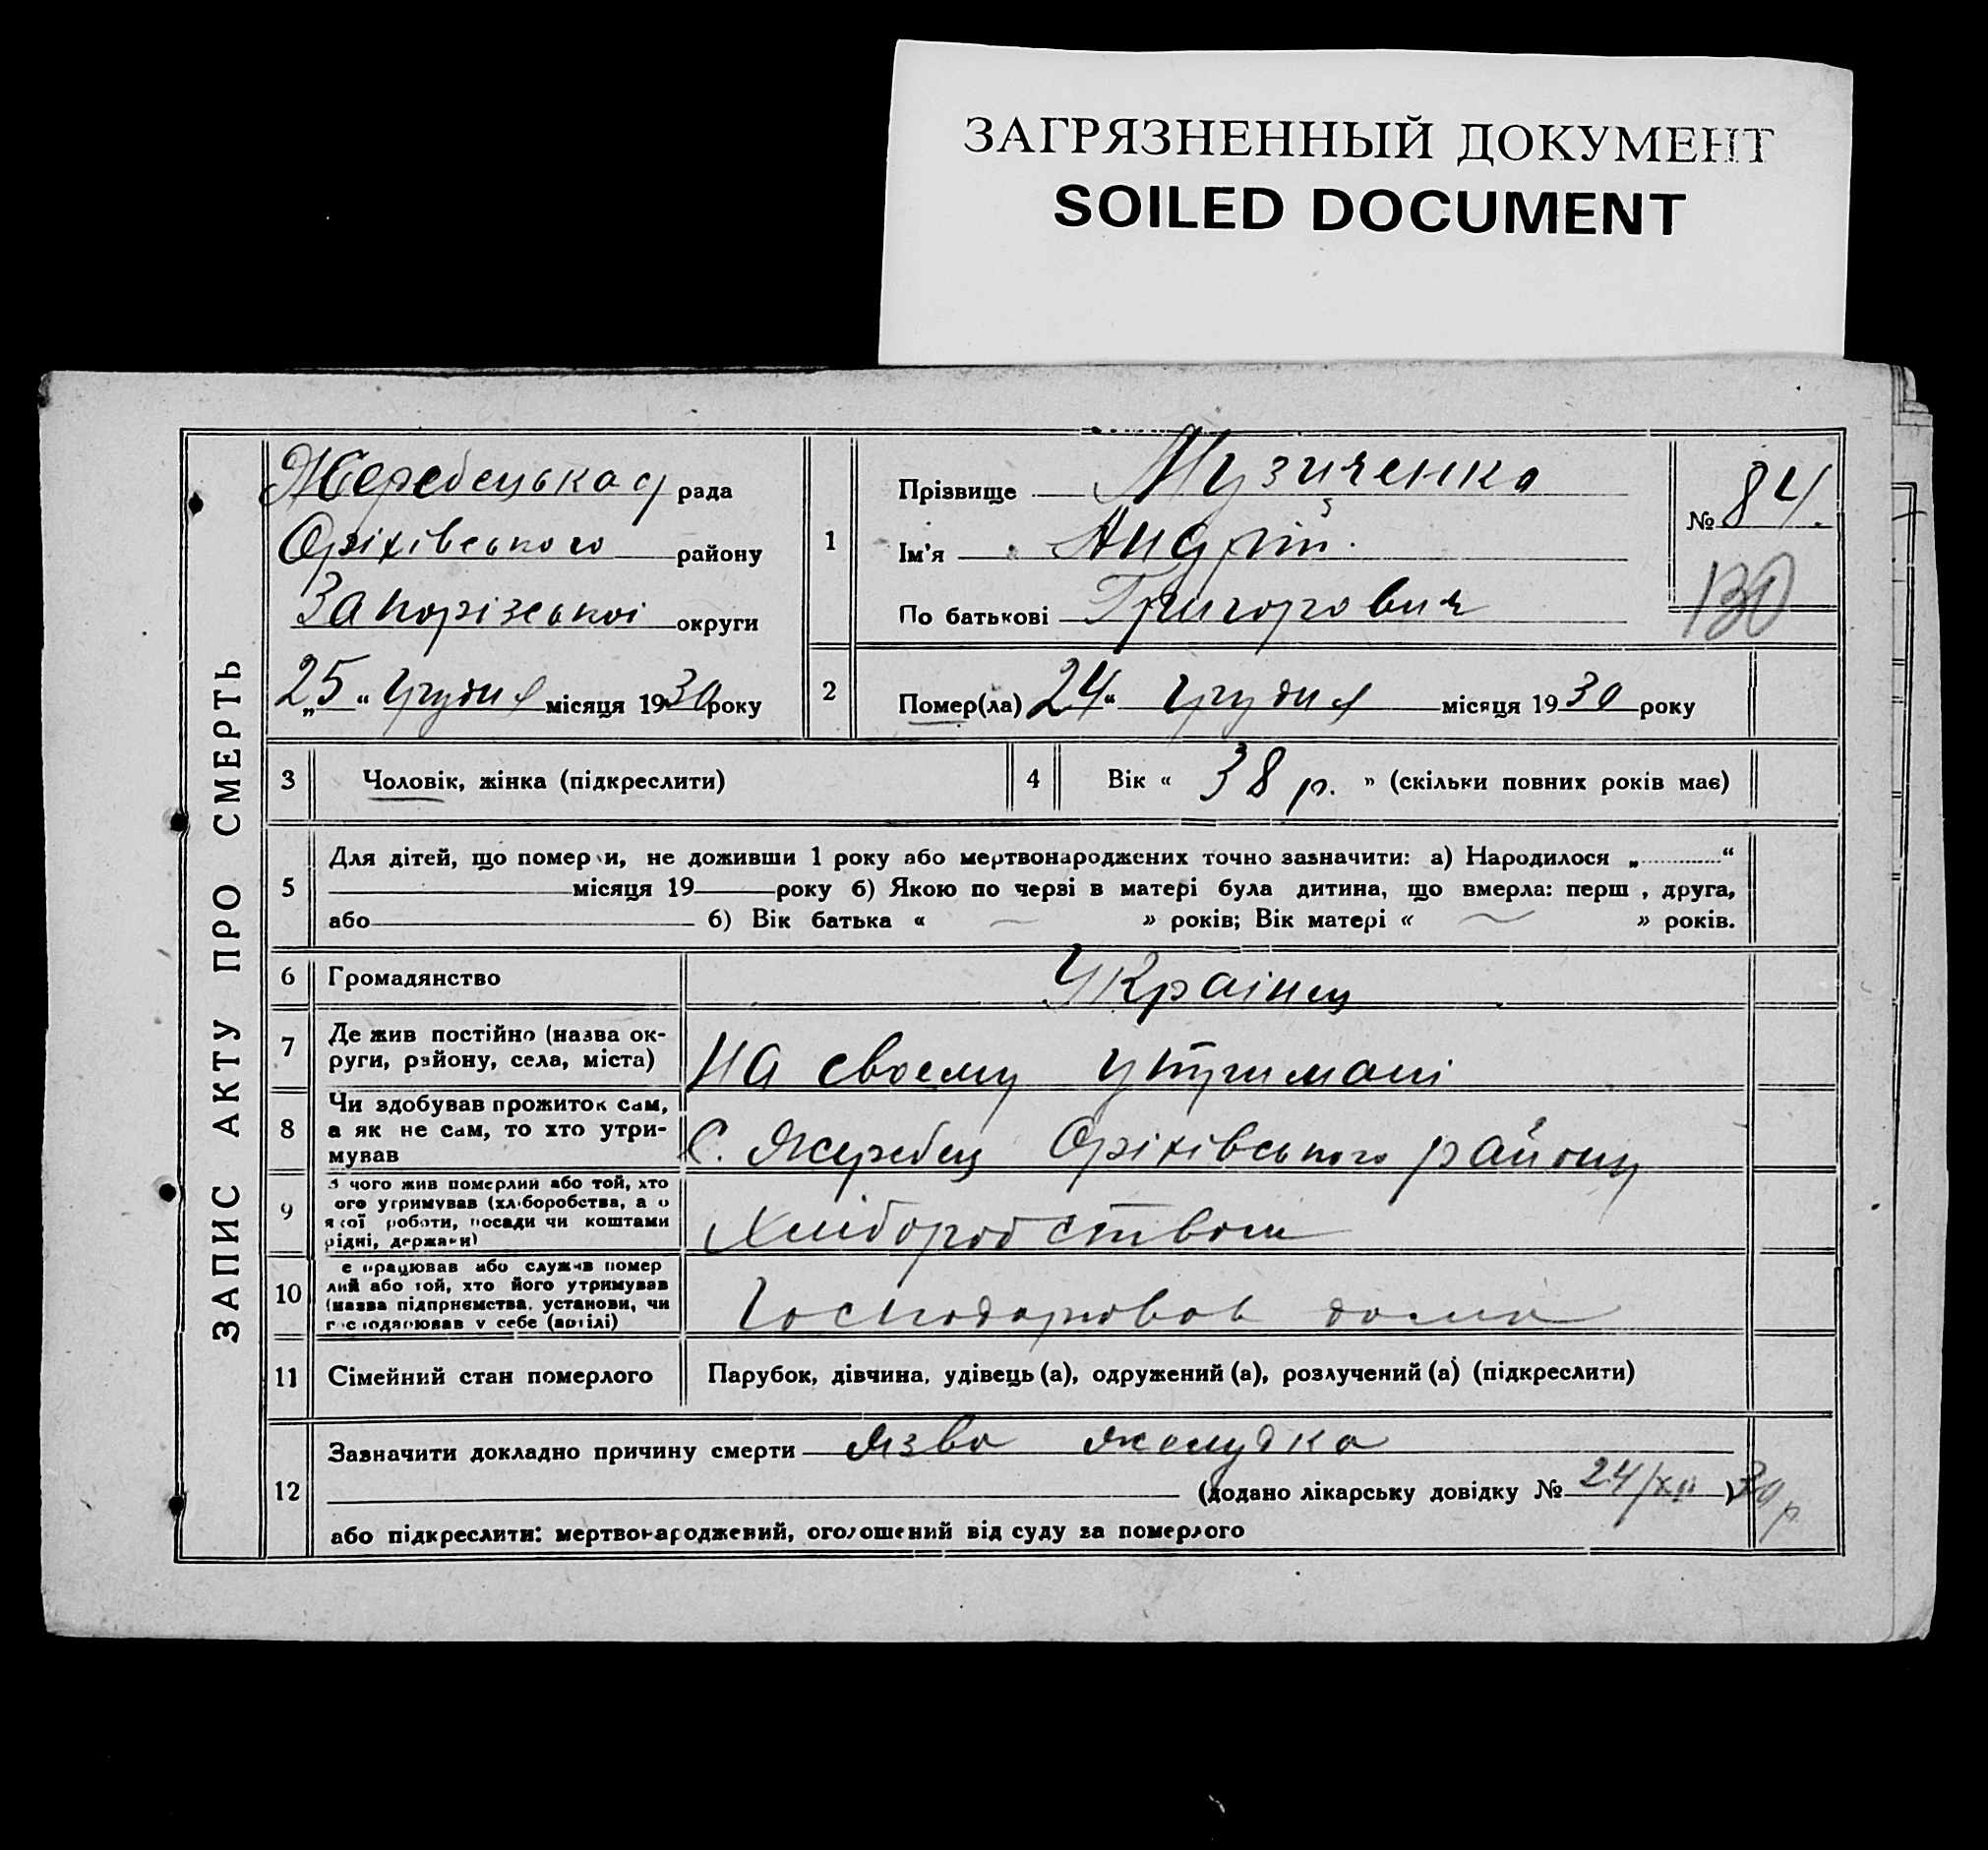 ЗАГРЯЗНЕННЫЙ ДОКУМЕНТ
SOILED DOCUMENT
ЗАПИС АКТУ ПРО СМЕРТЬ
Жеребецька с/ рада
Оріхівського району
Запорізької округи
„25“ грудня місяця 1930 року
1
Прізвище Музиченко
Ім'я Андрій.
По батькові Григорович
№ 84.
130
2
Помер(ла) 24“ грудня місяця 1930 року
3
Чоловік, жінка (підкреслити)
4
Вік « 38 р. » (скільки повних років має)
5
Для дітей, що померли, не доживши 1 року або мертвонароджених точно зазначити: а) Народилося „ “
місяця 19 року б) Якою по черзі в матері була дитина, що вмерла: перш , друга,
або б) Вік батька « ~ » років; Вік матері « ~ » років.
6
Громадянство
Украінец
7
Де жив постійно (назва ок-
руги, району, села, міста)
На своему утримані
8
Чи здобував прожиток сам,
а як не сам, то хто утри-
мував
С. Жеребец Оріхівського району
9
З чого жив померлий або той, хто
ого утримував (хліборобства, а о
якої роботи, посади чи коштами
рідні, держави)
Хліборобством
10
е працював або служив помер
лий або той, хто його утримував
(назва підприємства, установи, чи
господарював у себе (артілі)
Господарював дома
11
Сімейний стан померлого
Парубок, дівчина, удівець (а), одружений (а), розлучений (а) (підкреслити)
12
Зазначити докладно причину смерти Язва желудка
(додано лікарську довідку № 24/XII 30 р.
або підкреслити: мертвонароджений, оголошений від суду за померлого